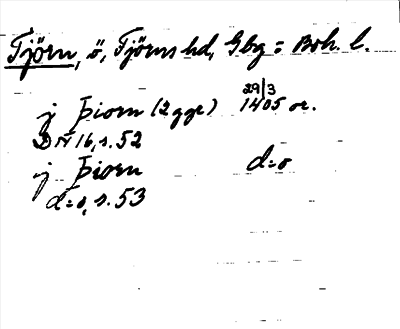 Tjörn, ö, Tjörns hd, Gbg = Boh. l.
j Þiorn (2 ggr) 29/3 1405 or.
DN 16, s. 52
j Þiorn d=o
d=o, s. 53